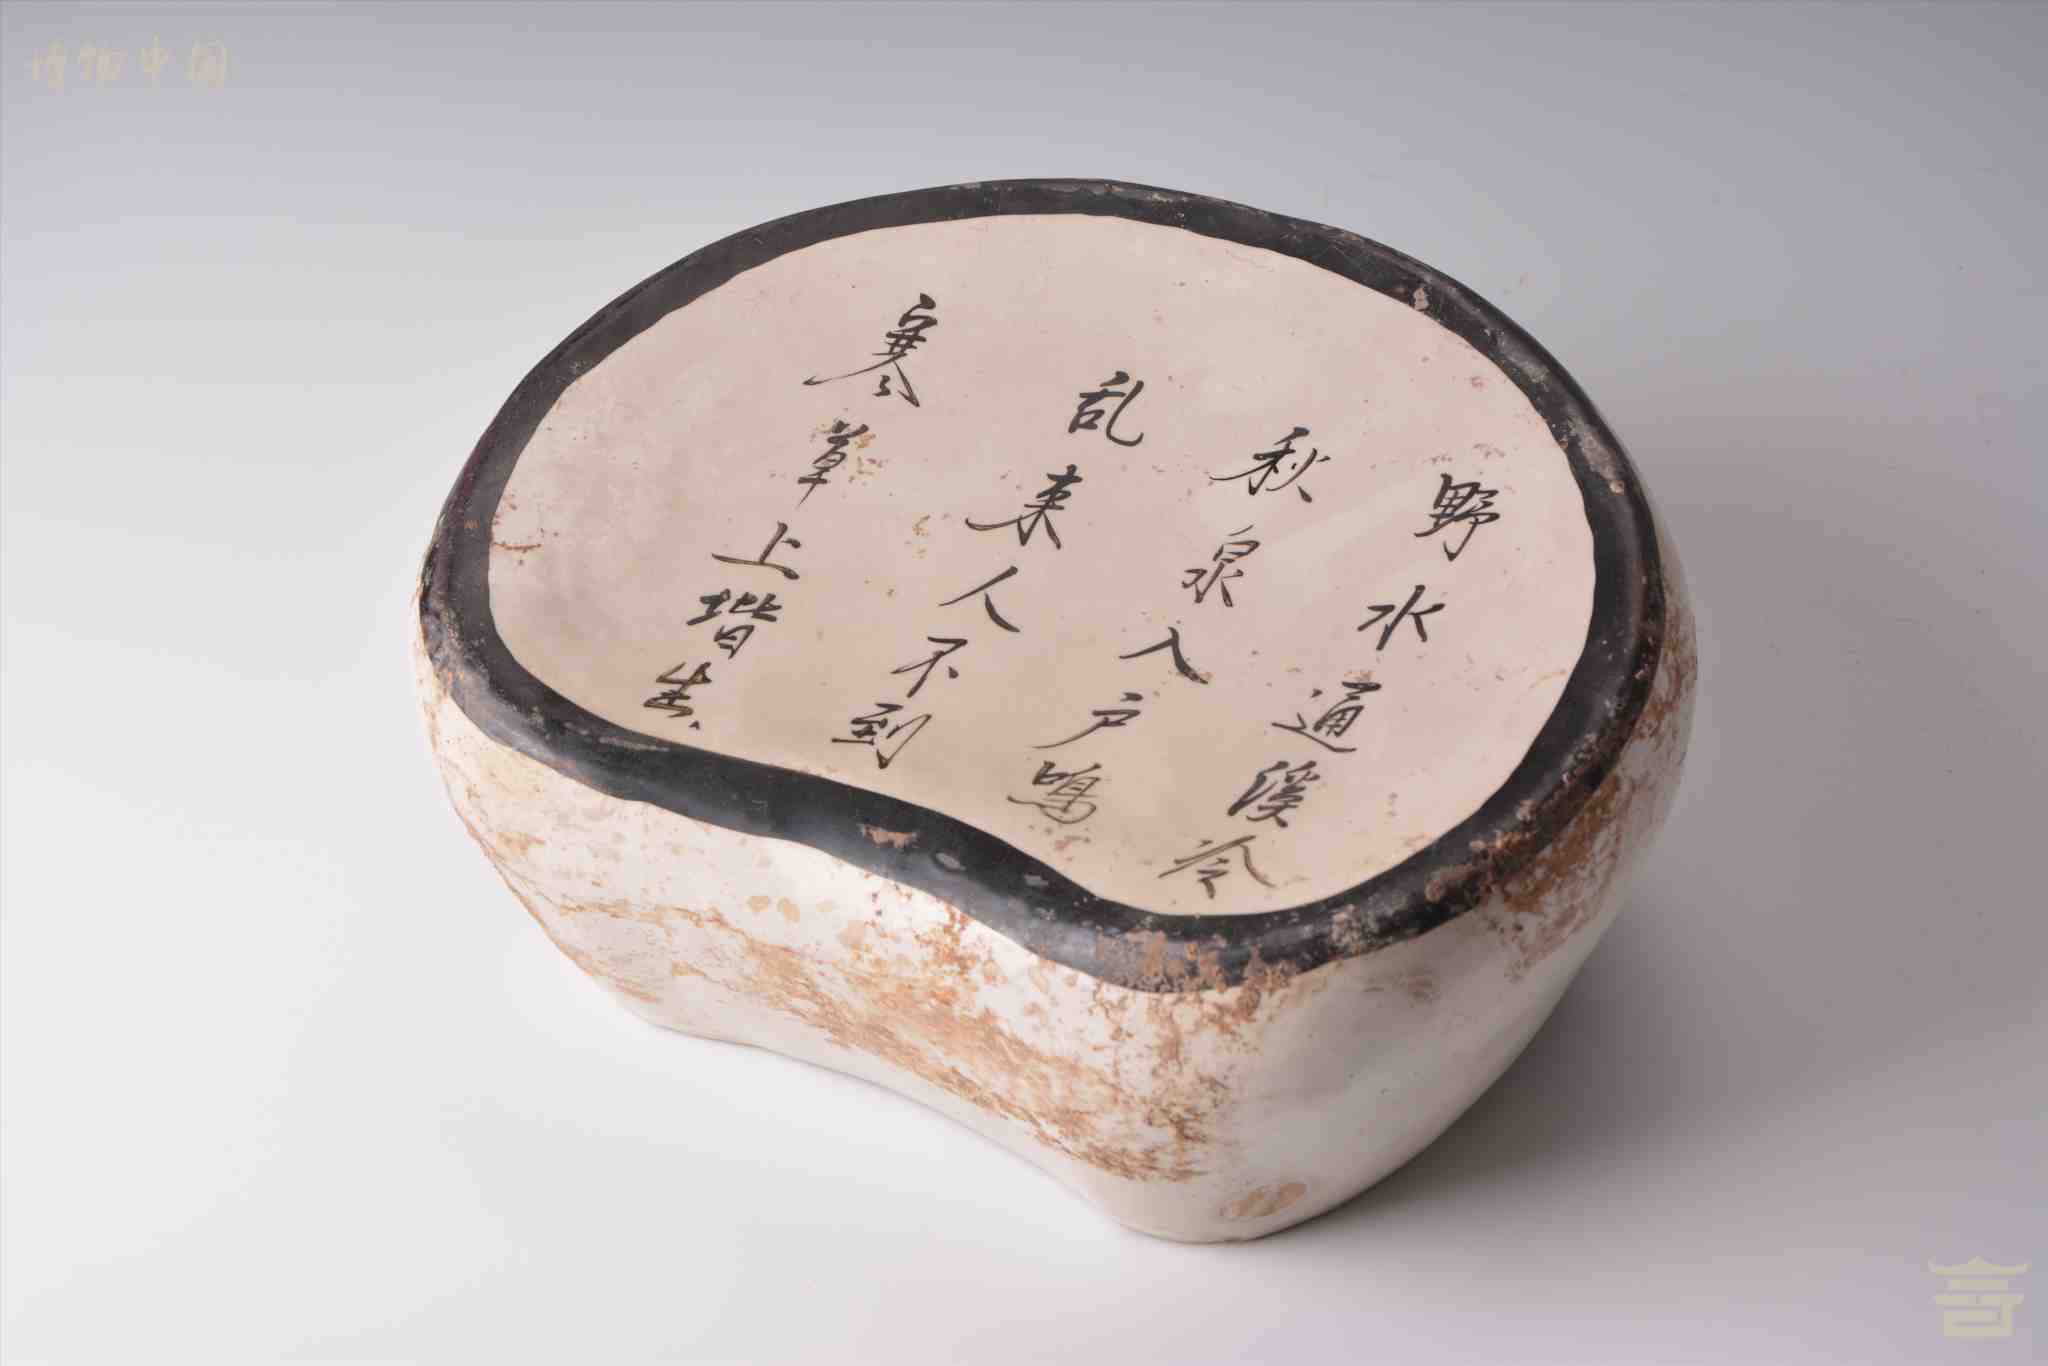 野水通溪冷
秋泉入户鳴
乱来人不到
寒草上堦生
博物中国